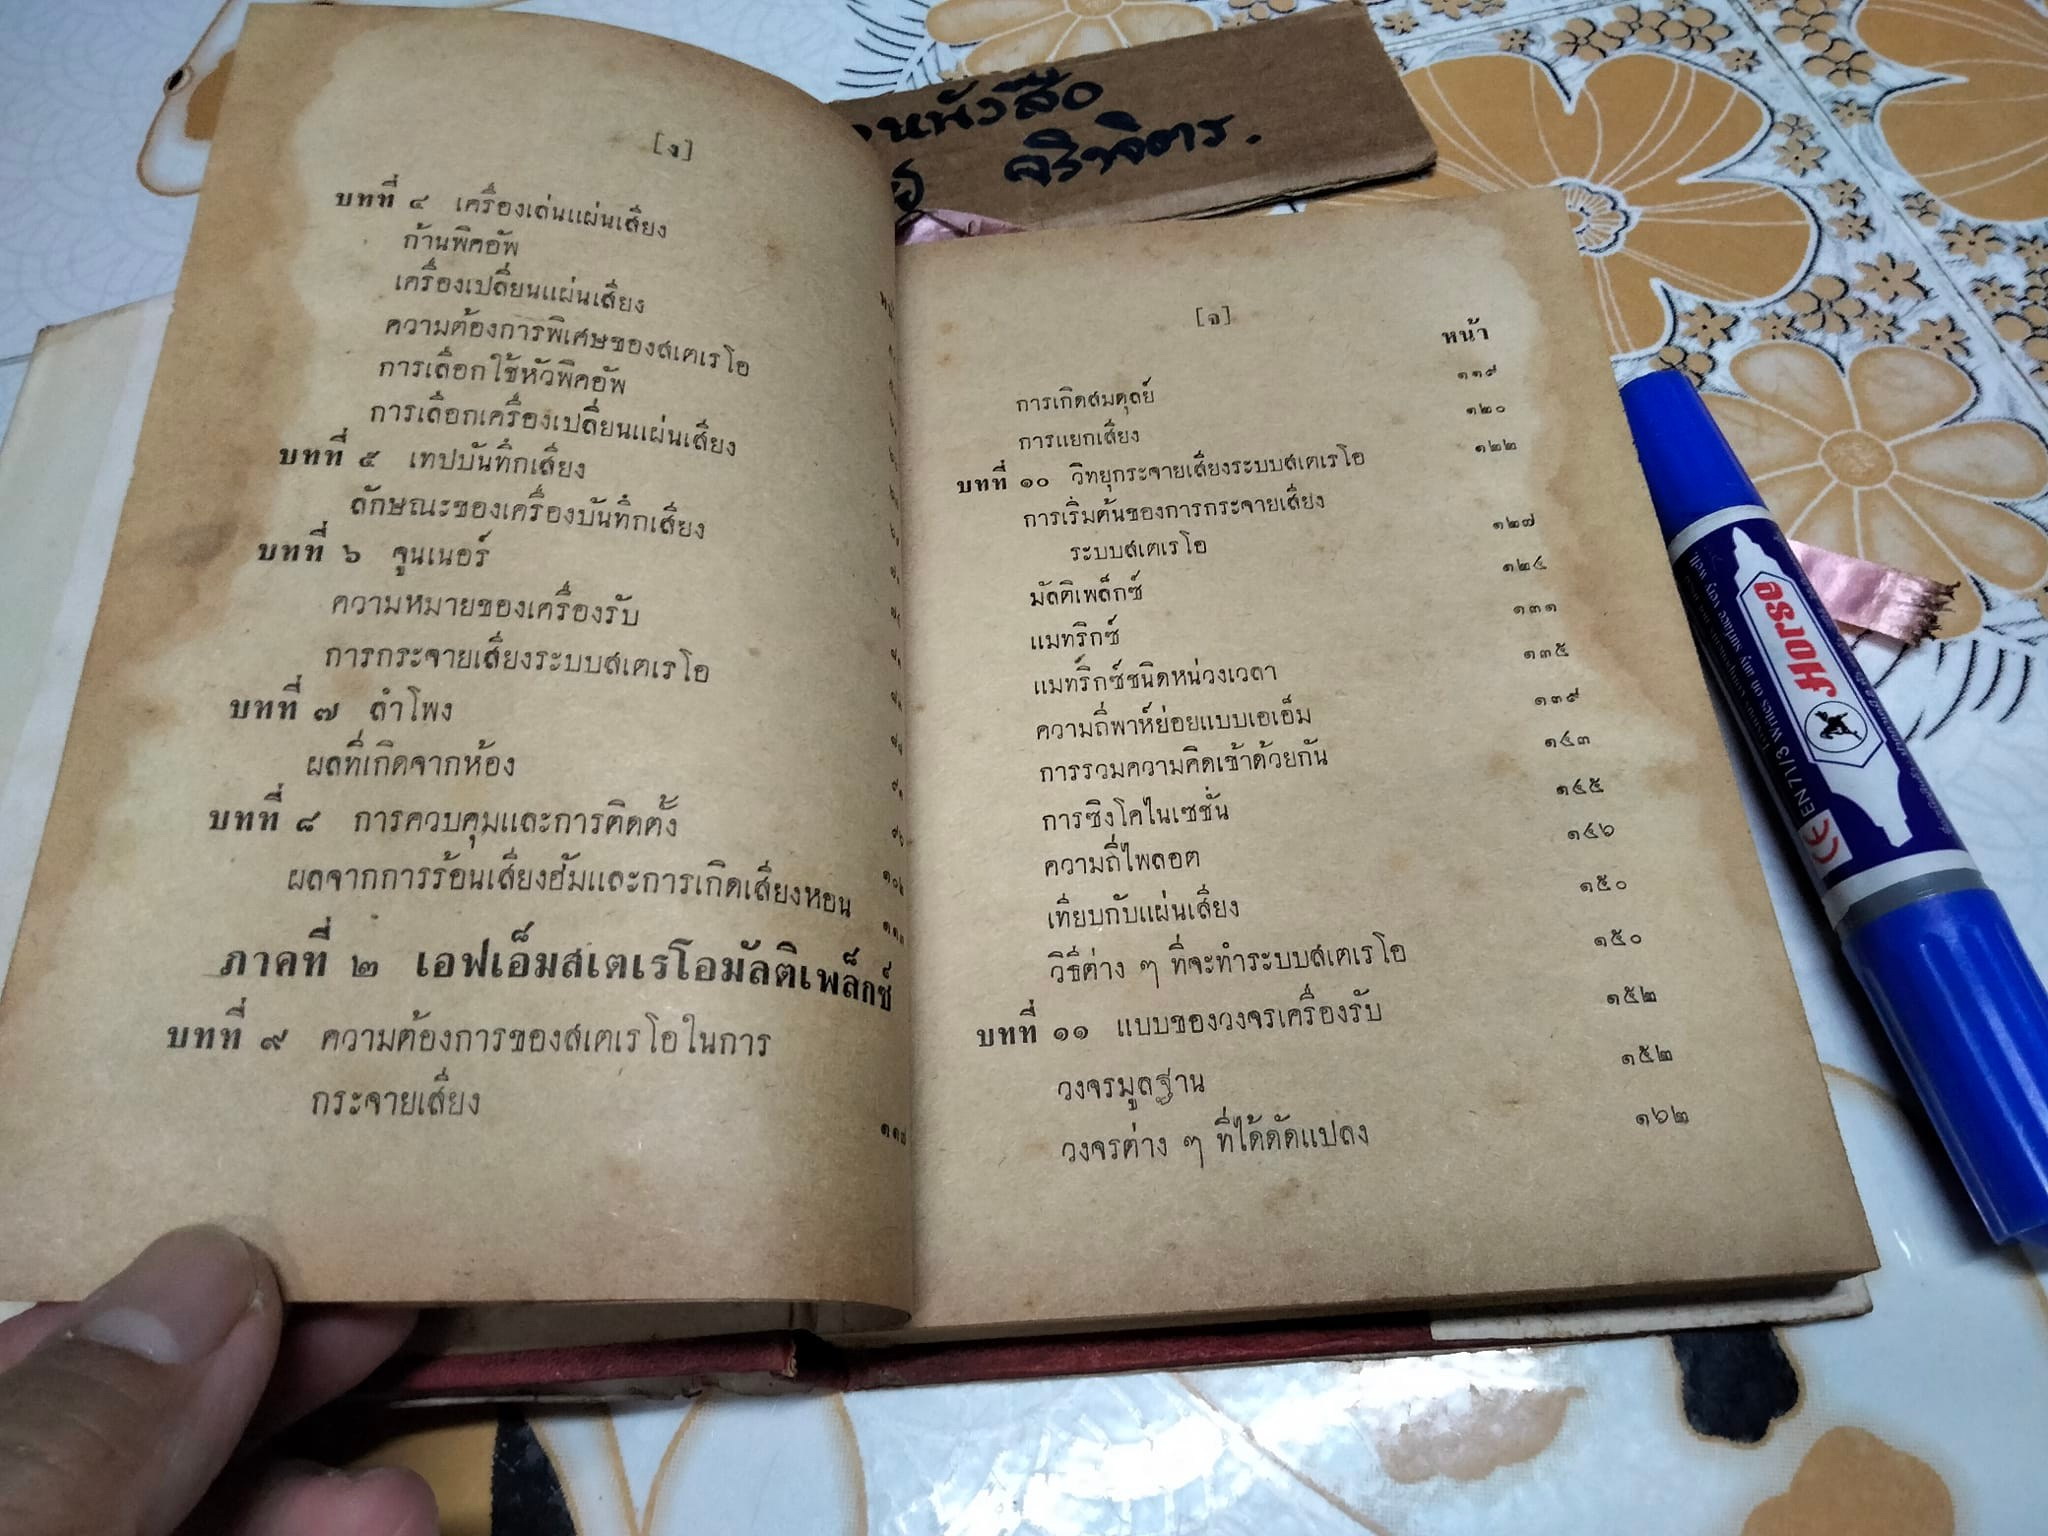 [ง]
บทที่ ๔ เครื่องเล่นแผ่นเสียง
ก้านพิคอัพ
เครื่องเปลี่ยนแผ่นเสียง
ความต้องการพิเศษของสเตเรโอ
การเลือกใช้หัวพิคอัพ
การเลือกเครื่องเปลี่ยนแผ่นเสียง
บทที่ ๕ เทปบันทึกเสียง
ลักษณะของเครื่องบันทึกเสียง
บทที่ ๖ จูนเนอร์
ความหมายของเครื่องรับ
การกระจายเสียงระบบสเตเรโอ
บทที่ ๗ ลำโพง
ผลที่เกิดจากห้อง
บทที่ ๘ การควบคุมและการติดตั้ง
ผลจากการร้อนเสียงฮัมและการเกิดเสียงหอน
ภาคที่ ๒ เอฟเอ็มสเตเรโอมัลติเพล็กซ์
บทที่ ๙ ความต้องการของสเตเรโอในการ
กระจายเสียง
๑๑๗
[จ]
หน้า
การเกิดสมดุลย์ ๑๑๙
การแยกเสียง ๑๒๐
บทที่ ๑๐ วิทยุกระจายเสียงระบบสเตเรโอ ๑๒๒
การเริ่มต้นของการกระจายเสียง
ระบบสเตเรโอ ๑๒๗
มัลติเพล็กซ์ ๑๒๔
แมทริกซ์ ๑๓๑
แมทริกซ์ชนิดหน่วงเวลา ๑๓๕
ความถี่พาห์ย่อยแบบเอเอ็ม ๑๓๙
การรวมความคิดเข้าด้วยกัน ๑๔๓
การซิงโคไนเซชั่น ๑๔๕
ความถี่ไพลอต ๑๔๖
เทียบกับแผ่นเสียง ๑๕๐
วิธีต่าง ๆ ที่จะทำระบบสเตเรโอ ๑๕๐
บทที่ ๑๑ แบบของวงจรเครื่องรับ ๑๕๒
วงจรมูลฐาน ๑๕๒
วงจรต่าง ๆ ที่ได้ดัดแปลง ๑๖๒
หนังสือ
จริงจิตร.
Horse
EN 71/3 Writes on any surface very well.
CE